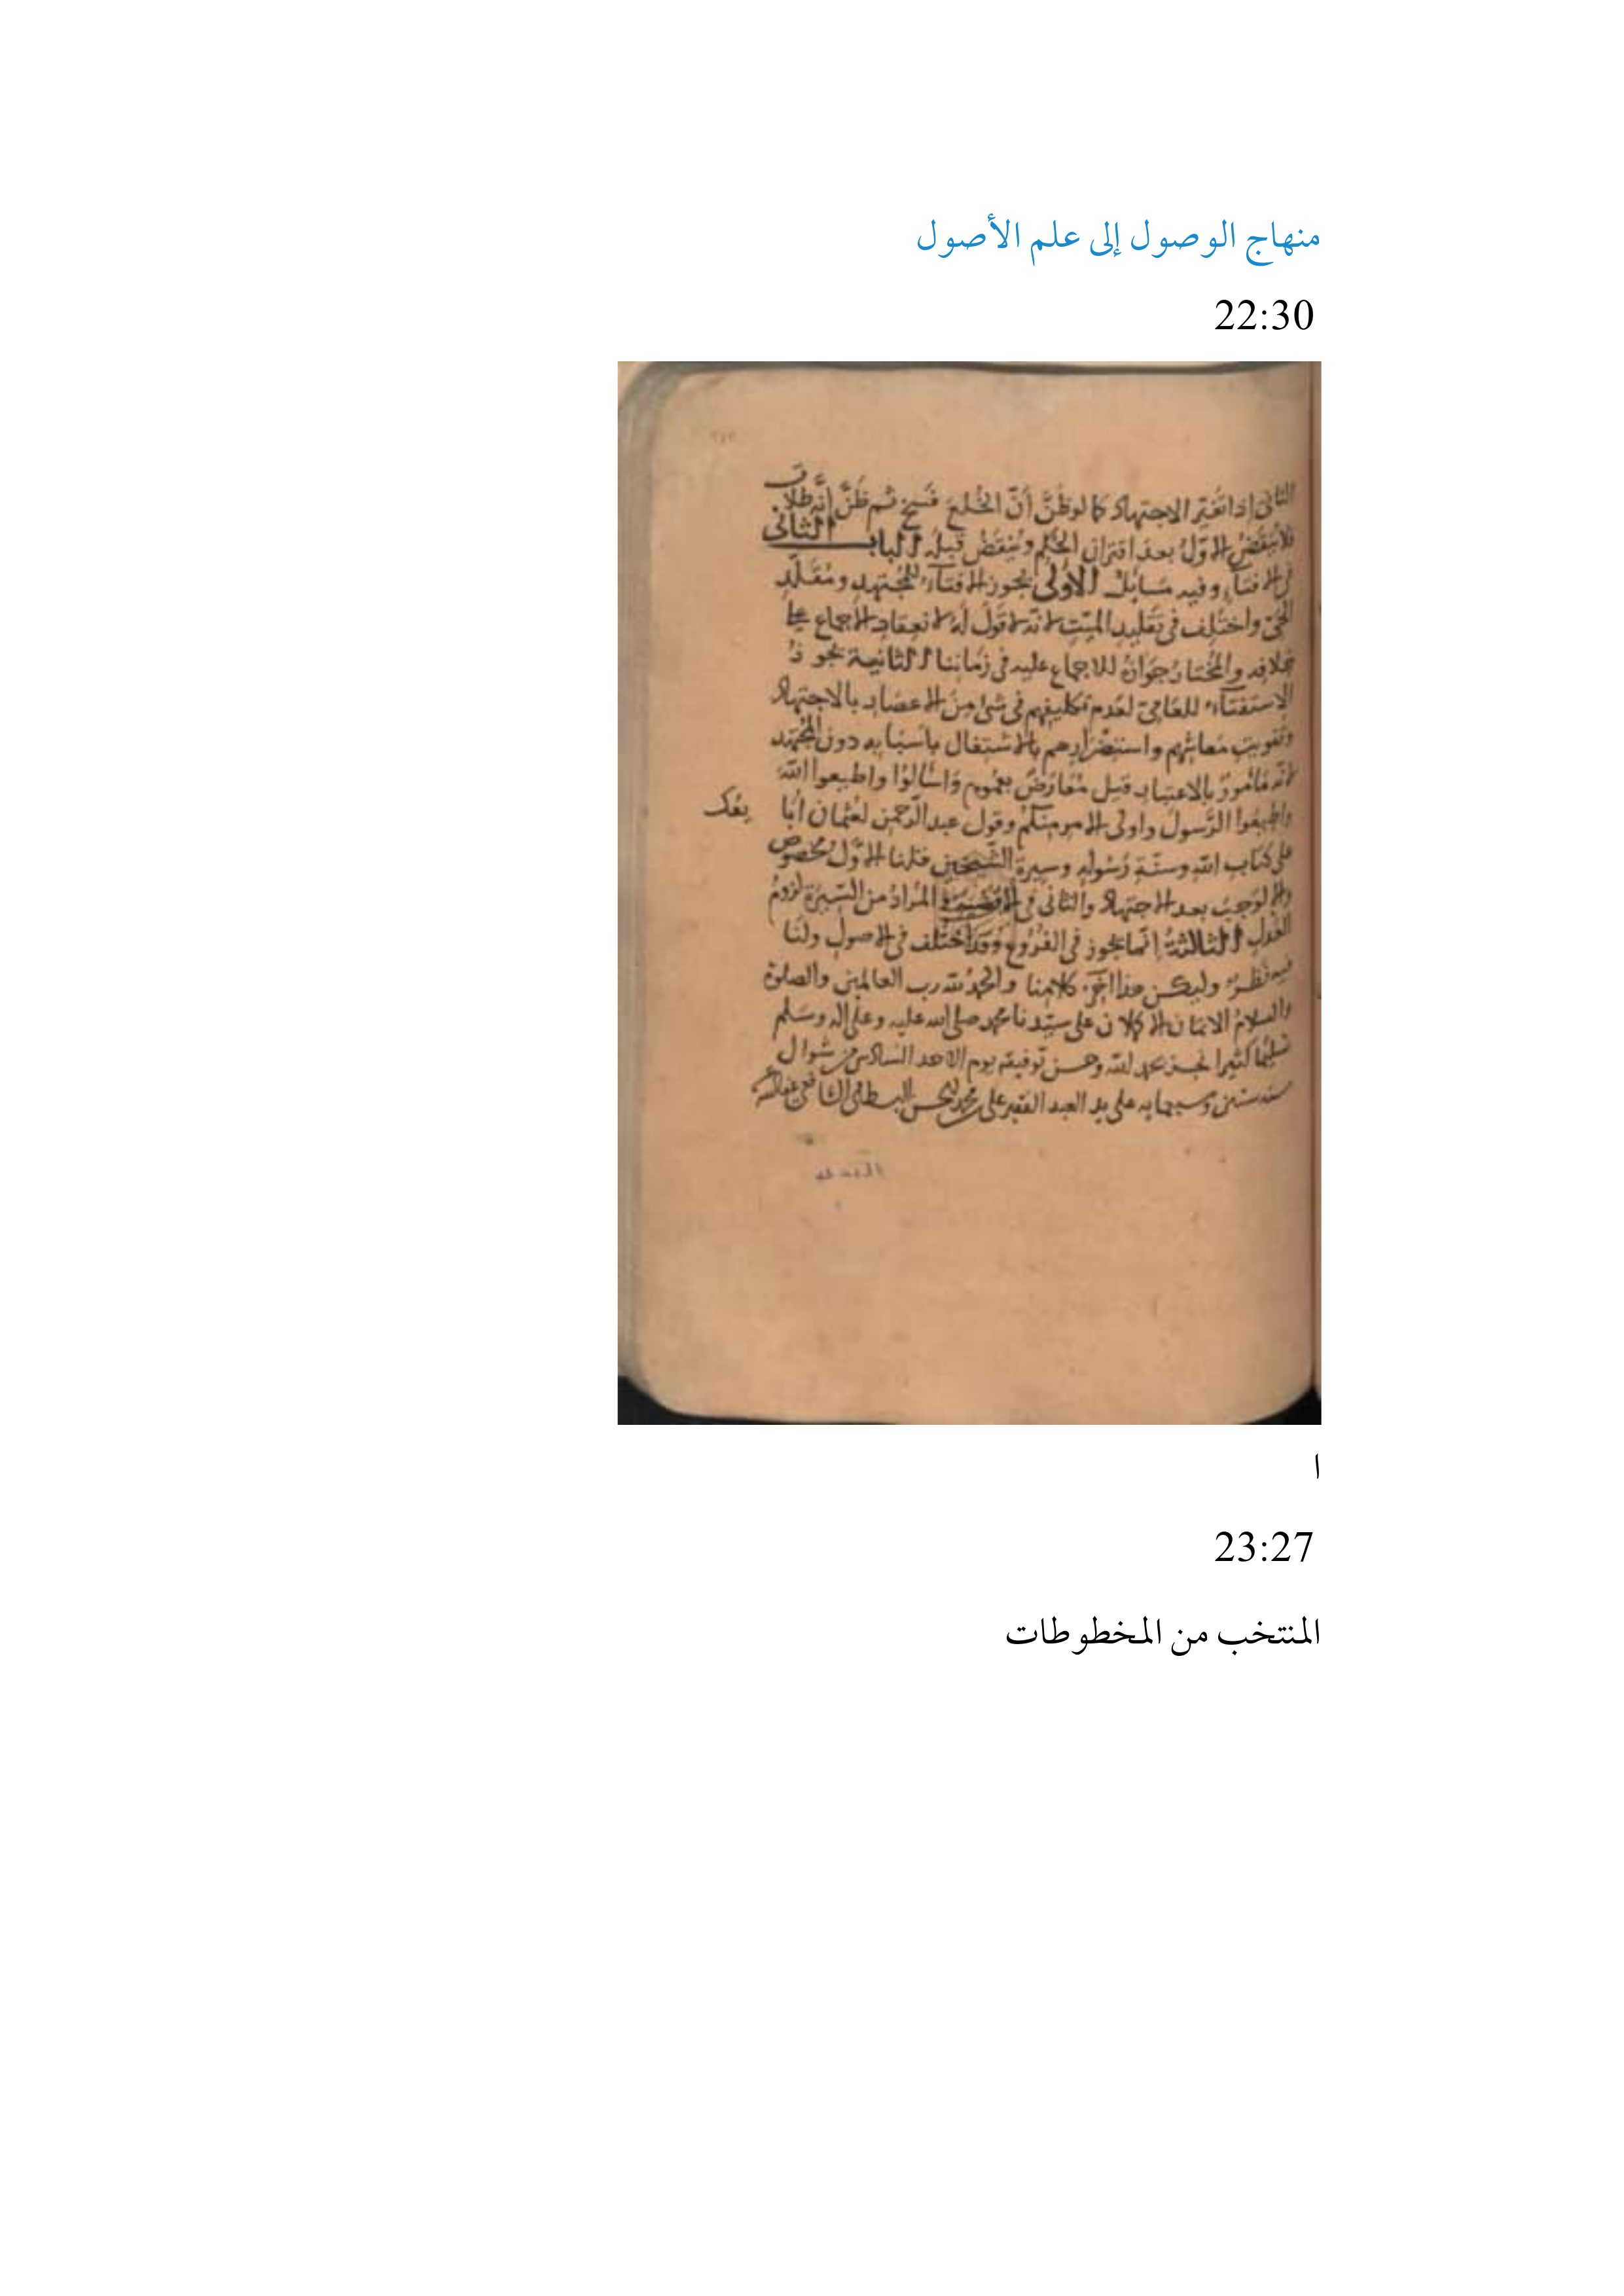 منهاج الوصول إلى علم الأصول
22:30
الثانى إذا تغير الاجتهاد كما لو ظنَّ أنّ الخُلعَ فسخ ثم ظنَّ أنَّه طلاق
فلا ينقض الاوّلُ بعد اقتران الحكم وينقضُ قبله الباب الثانى
فى الافتآء وفيه مسايل الأولى يجوز الافتآء للمجتهد ومقلّد
الحىّ واختُلِف فى تقليد الميّت لانه لا قول له لانعقاد الاجماع على
خلافه والمختار جوازه للاجماع عليه فى زماننا الثانية يجوز
الاستفتآء للعامىّ لعدم تكليفهم فى شئ من الاعصار بالاجتهاد
وتفويت معاشهم واستضرارهم بالاشتغال باسبابه دون المجتهد
لانه مأمورٌ بالاعتبار قيل مُعارَضٌ بعموم واسألوا واطيعوا الله
واطيعوا الرَّسول واولى الامر منكم وقول عبد الرّحمن لعثمان ابا
يعك
على كتاب الله وسنّة رسوله وسيرة الشيخين قلنا الاوّل مخصوص
والا لوجب بعد الاجتهاد والثانى فى الاقضية المرادُ من السّيرة لزوم
العدل الثالثة انما يجوز فى الفروع وقد اختُلف فى الاصول ولنا
فيه نظرٌ وليكن هذا آخر كلامنا والحمد لله رب العالمين والصلوة
والسلام الاتمان الاكملان على سيّدنا محمد صلى الله عليه وعلى اله وسلم
تسليما كثيرا نجز بحمد الله وحسن توفيقه يوم الاحد السادس من شوال
سنة ستين وسبعمايه على يد العبد الفقير على محمد الشافعى
ا
23:27
المنتخب من المخطوطات